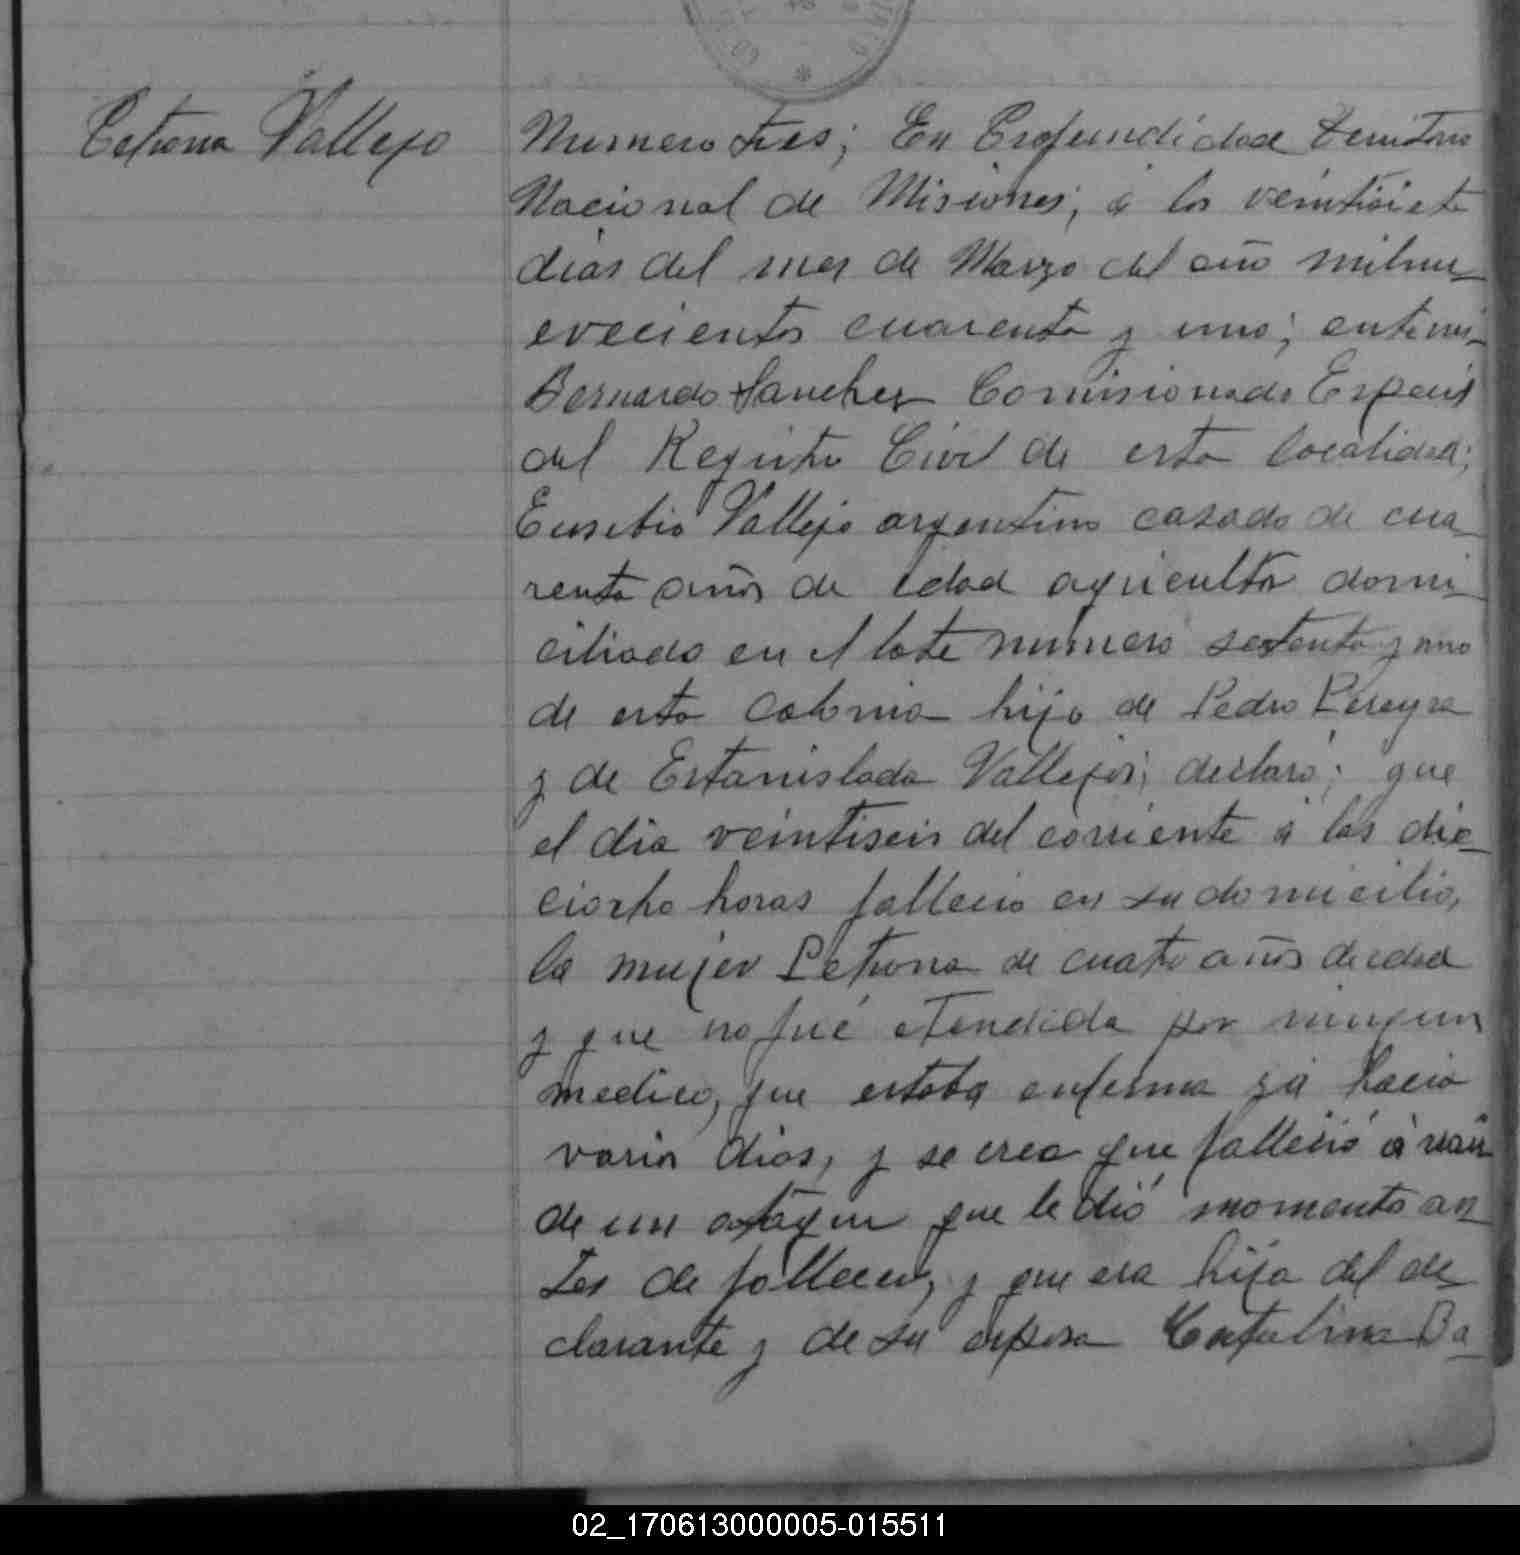 Petrona Vallejo
Numero tres; En Profundidad Territorio
Nacional de Misiones, á los veintisiete
dias del mes de Marzo del año milnu_
evecientos cuarenta y uno; ante mi,
Bernardo Sanchez Comisionado Especial
del Registro Civil de esta localidad;
Eusebio Vallejo argentino casado de cua_
renta años de edad agricultor domi_
ciliado en el lote numero setenta y uno
de esta colonia hijo de Pedro Pereyra
y de Estanislada Vallejos; declaró; que
el dia veintiseis del corriente á las die_
ciocho horas fallecio en su domicilio,
la mujer Petrona de cuatro años de edad
y que no fué atendida por ningun
medico, que estaba enferma ya hacia
varios dias, y se cree que falleció á raiz
de un ataque que le dió momento an_
tes de fallecer, y que era hija del de_
clarante y de su esposa Catalina Ba_
02_170613000005-015511